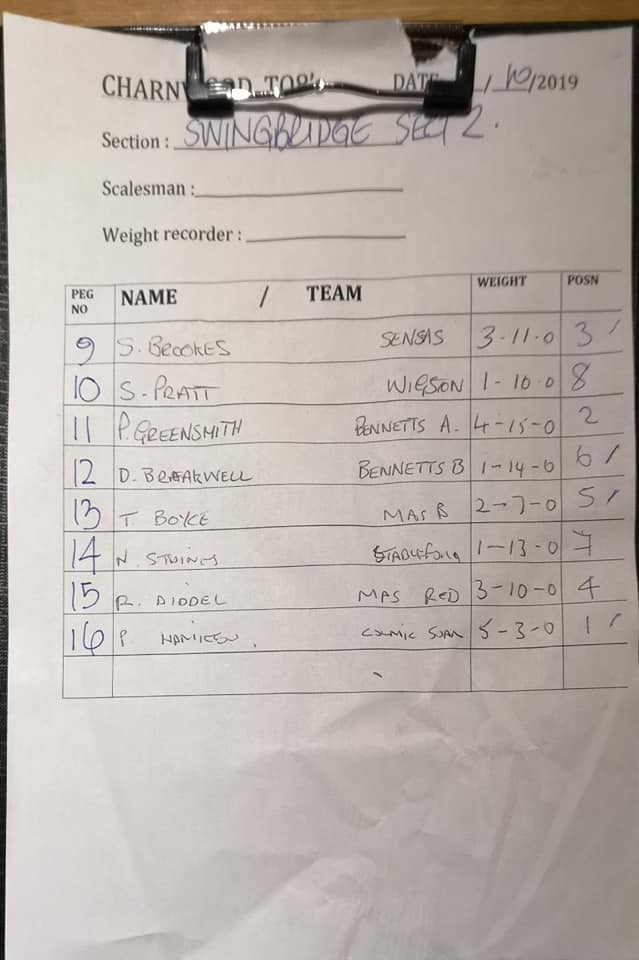 CHARNWOOD TOP's DATE / 10/2019
Section : SWINGBRIDGE SECT 2.
Scalesman :
Weight recorder :
PEG NO NAME / TEAM WEIGHT POSN
9 S. BROOKES SENSAS 3-11-0 3 /
10 S. PRATT WIGSON 1-10-0 8
11 P. GREENSMITH BENNETTS A. 4-15-0 2
12 D. BREAKWELL BENNETTS B 1-14-0 6 /
13 T BOYCE MAS B 2-7-0 5 /
14 N. 1-13-0 7
15 R. MAS RED 3-10-0 4
16 P 5-3-0 1 /